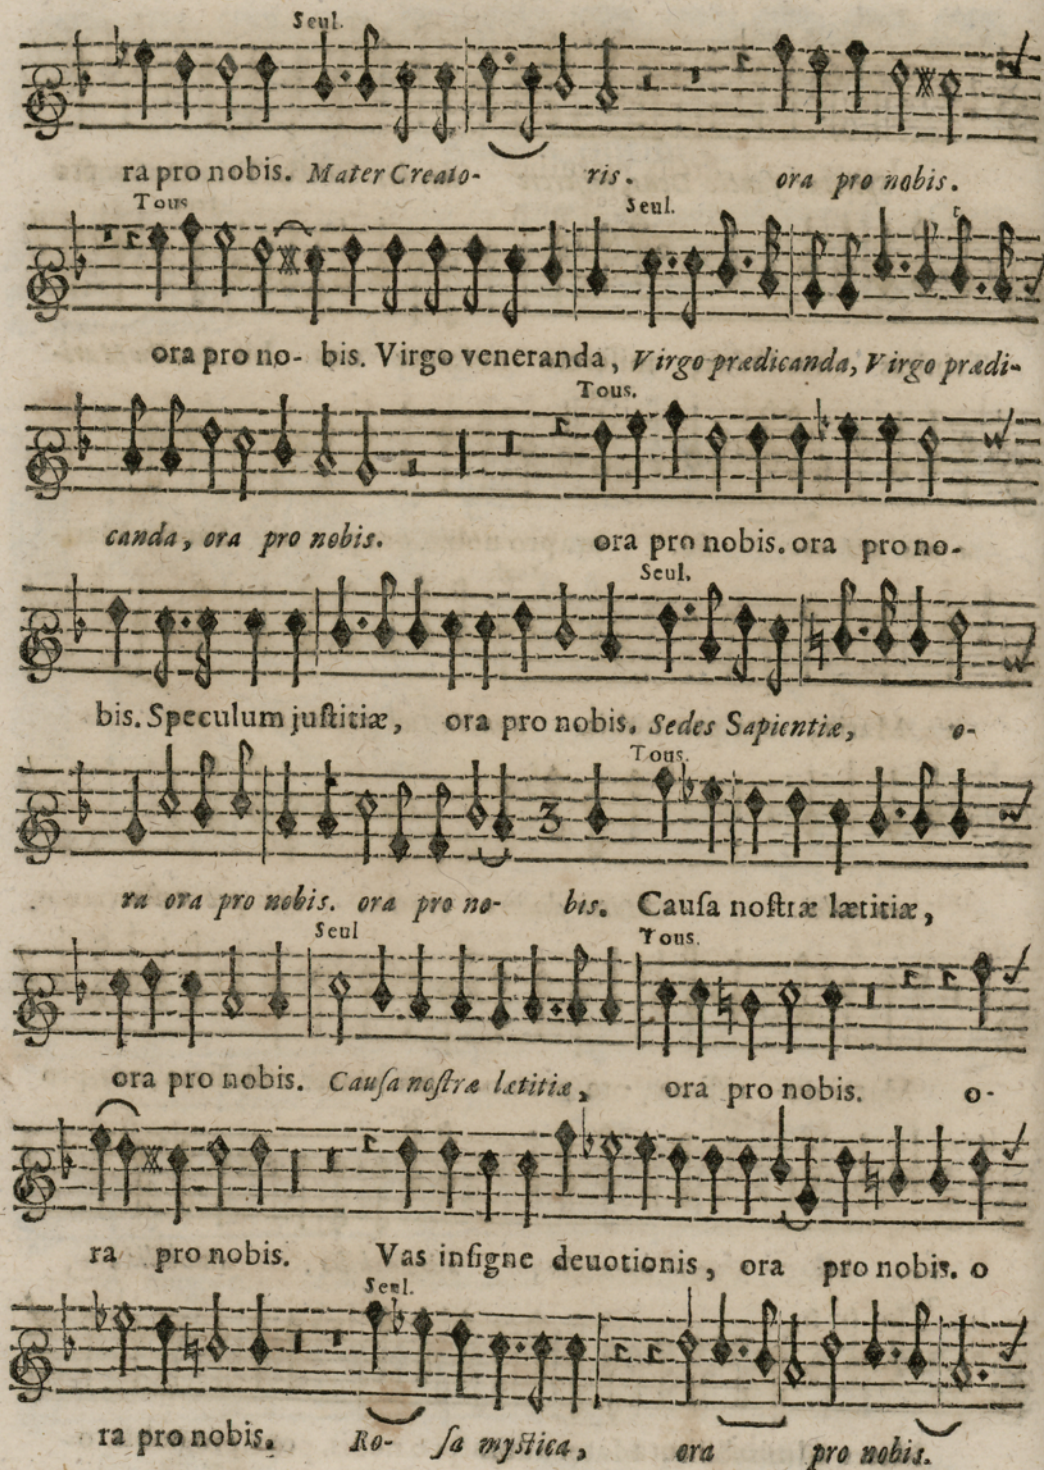 Seul.
ra pro nobis. Mater Creato- ris. ora pro nobis.
Tous Seul.
ora pro no- bis. Virgo veneranda, Virgo prædicanda, Virgo prædi-
Tous.
canda, ora pro nobis. ora pro nobis. ora pro no-
Seul.
bis. Speculum juſtitiæ, ora pro nobis. Sedes Sapientiæ, o-
Tous.
3
ra ora pro nobis. ora pro no- bis. Cauſa noſtræ lætitiæ,
Seul Tous.
ora pro nobis. Cauſa noſtræ lætitiæ, ora pro nobis. o-
ra pro nobis. Vas inſigne deuotionis, ora pro nobis. o
Seul.
ra pro nobis. Ro- ſa myſtica, ora pro nobis.